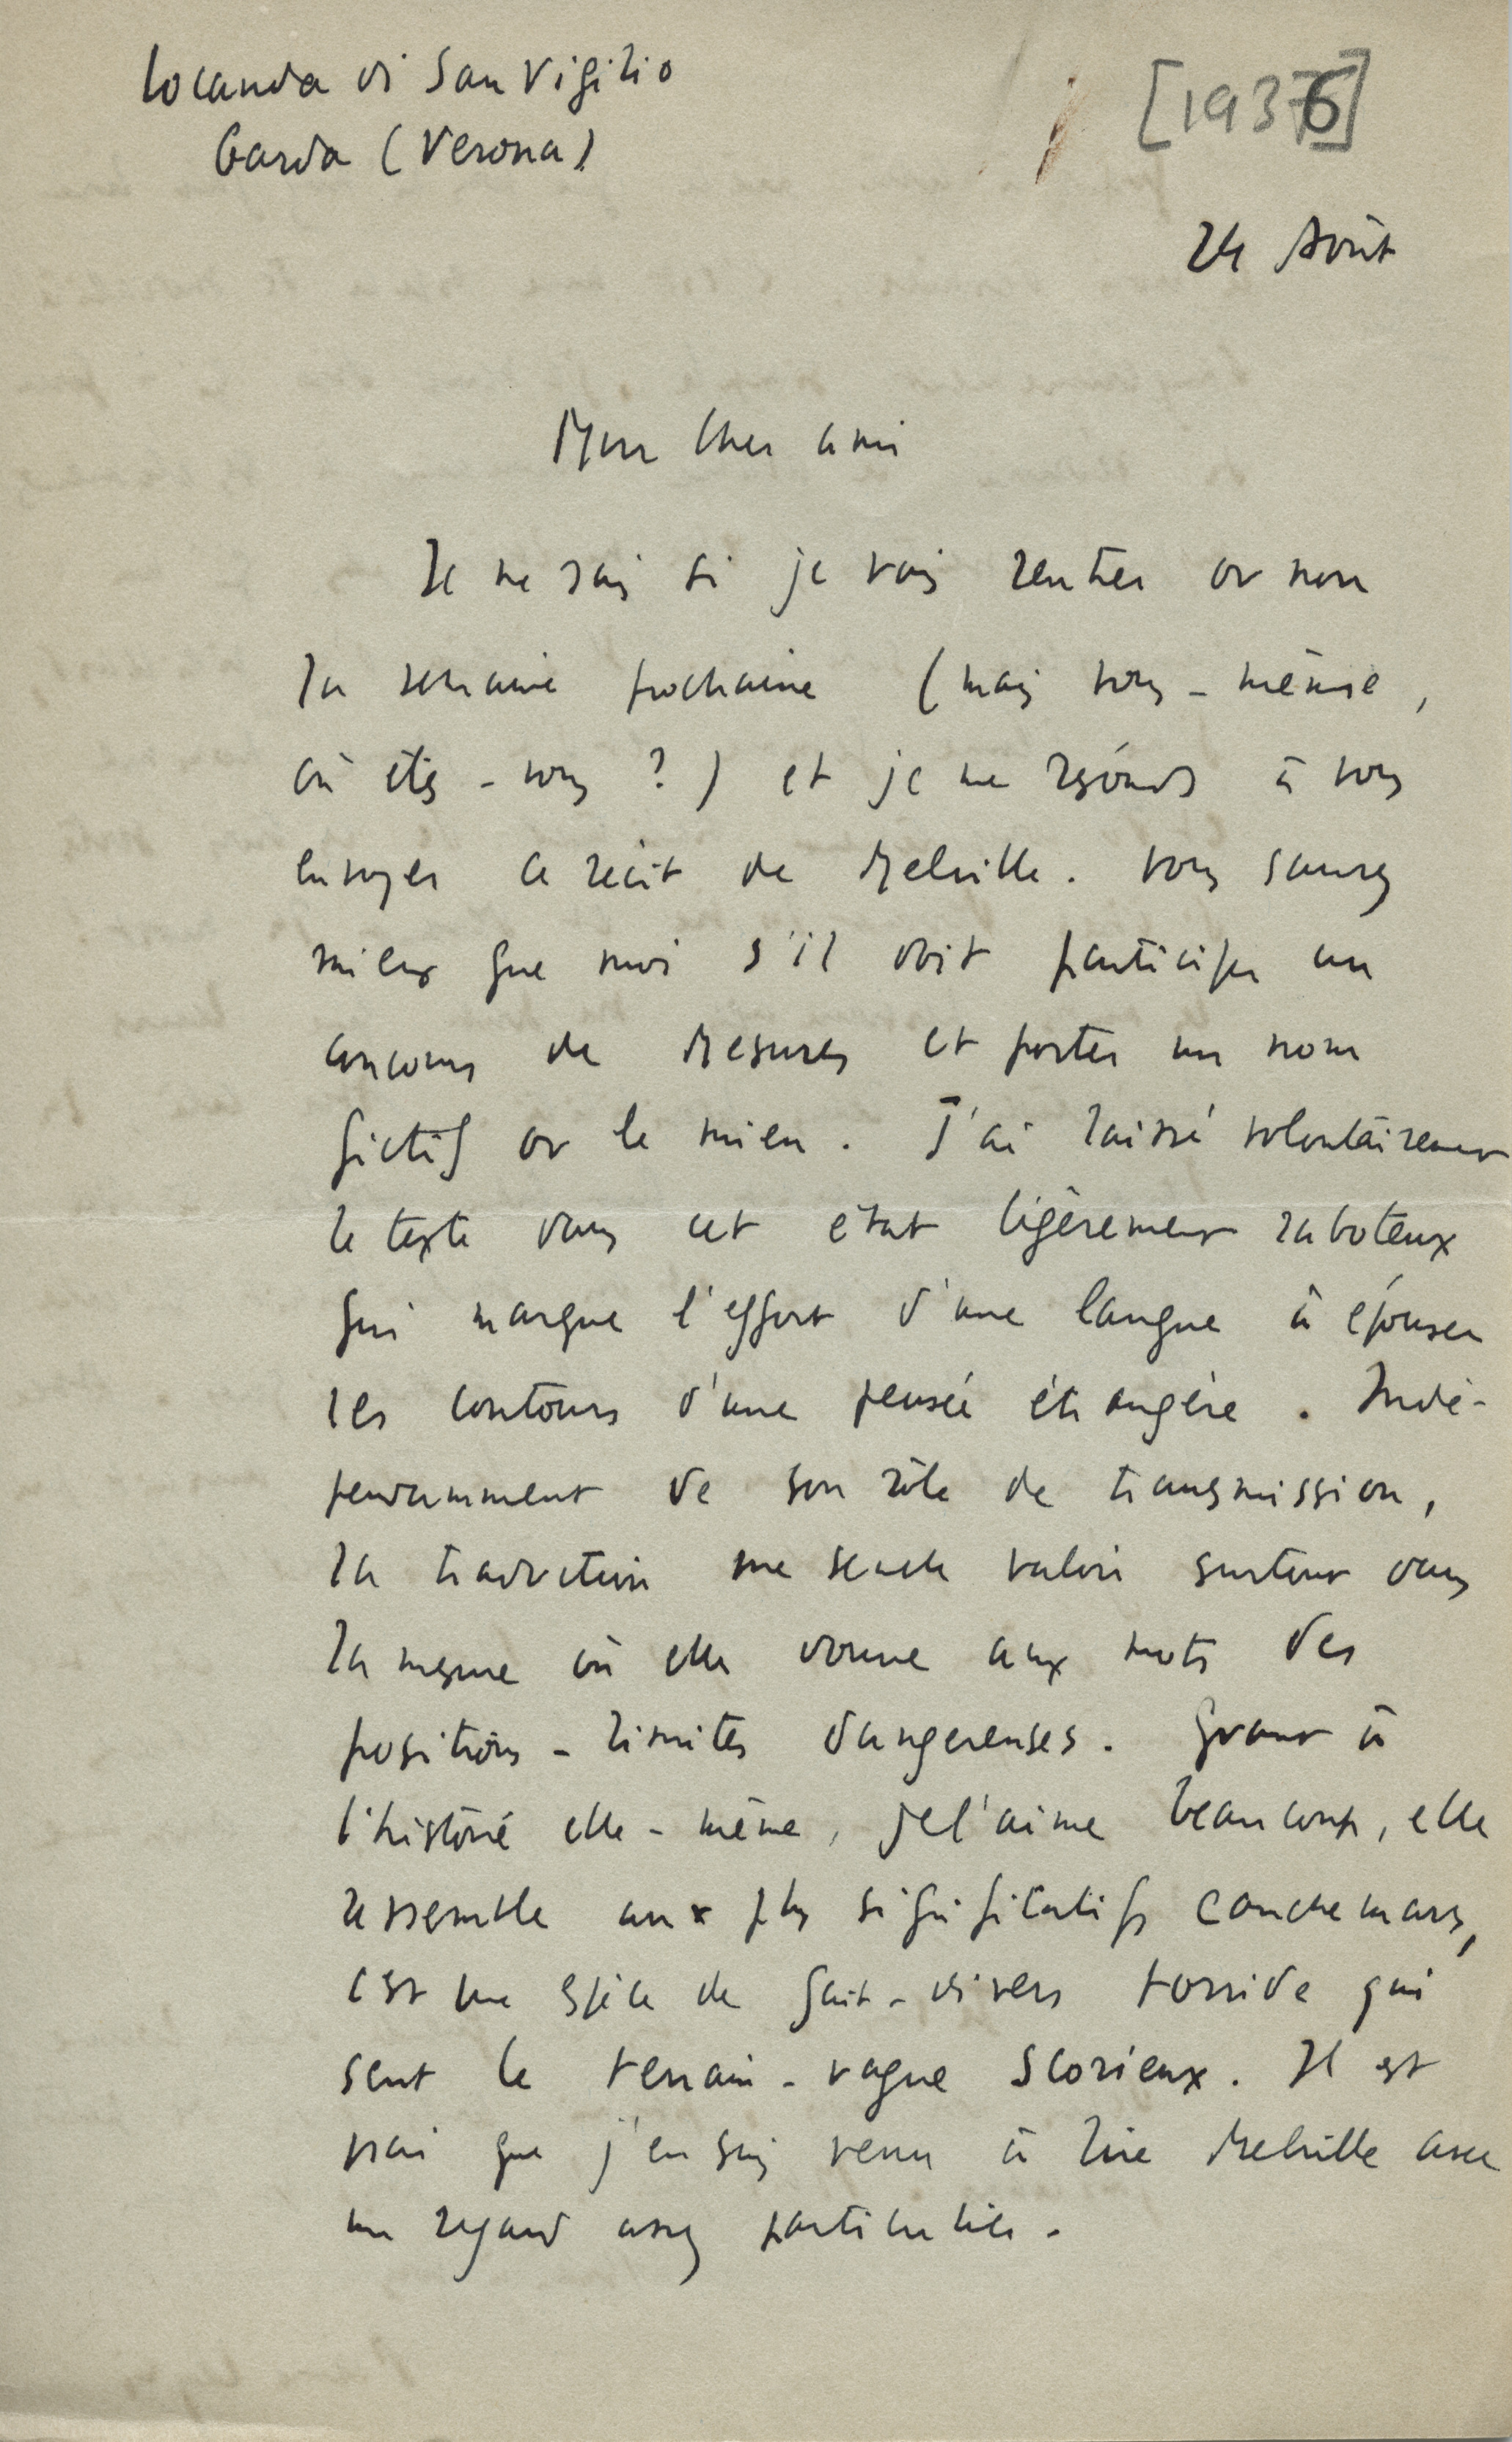 Locanda di San Vigilio
Garda (Verona)
[1936]
24 Août
Mon cher ami
Je ne sais si je vais rentrer ou non
la semaine prochaine (mais vous-même,
où êtes-vous ?) et je me résouds à vous
envoyer ce récit de Melville. Vous saurez
mieux que moi s'il doit participer au
concours de Mesures et porter un nom
fictif ou le mien. J'ai laissé volontairement
le texte dans cet état légèrement raboteux
qui marque l'effort d'une langue à épouser
les contours d'une pensée étrangère. Indé-
pendamment de son rôle de transmission,
la traduction me semble valoir surtout dans
la mesure où elle donne aux mots des
positions-limites dangereuses. Quant à
l'histoire elle-même, je l'aime beaucoup, elle
ressemble aux plus significatifs cauchemars,
c'est une espèce de fait-divers torride qui
sent le terrain-vague scorieux. Il est
vrai que j'en suis venu à lire Melville avec
un regard assez particulier.